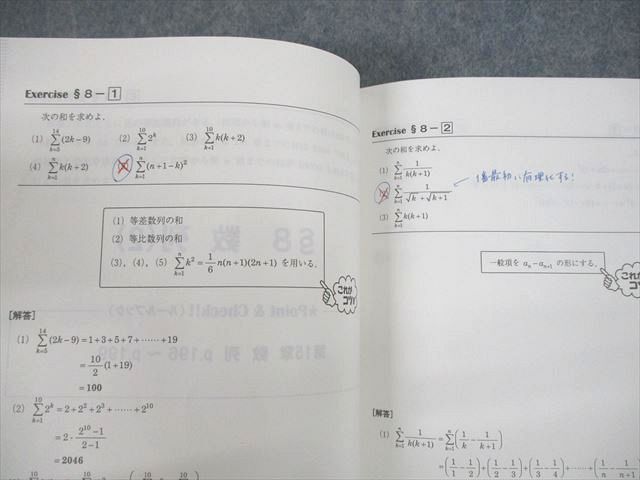 Exercise §8－1
次の和を求めよ.
(1) \sum_{k=5}^{14}(2k-9) (2) \sum_{k=1}^{10}2^k (3) \sum_{k=1}^{10}k(k+2)
(4) \sum_{k=1}^{n}k(k+2) (5) \sum_{k=1}^{n}(n+1-k)^2
(1) 等差数列の和
(2) 等比数列の和
(3), (4), (5) \sum_{k=1}^{n}k^2=\frac{1}{6}n(n+1)(2n+1) を用いる.
これがコツ!!
[解答]
(1) \sum_{k=5}^{14}(2k-9)=1+3+5+7+……+19
=\frac{10}{2}(1+19)
=100
(2) \sum_{k=1}^{10}2^k=2+2^2+2^3+……+2^{10}
=2・\frac{2^{10}-1}{2-1}
=2046
§8 数列(2)
★Point & Check!!(ルールブック)
第15章 数列 p.196 ～ p.199
Exercise §8－2
次の和を求めよ.
(1) \sum_{k=1}^{n}\frac{1}{k(k+1)}
(2) \sum_{k=1}^{n}\frac{1}{\sqrt{k}+\sqrt{k+1}}
最初に有理化する!
(3) \sum_{k=1}^{n}k(k+1)
一般項を a_n-a_{n+1} の形にする.
これが
コツ
[解答]
(1) \sum_{k=1}^{n}\frac{1}{k(k+1)}=\sum_{k=1}^{n}\left(\frac{1}{k}-\frac{1}{k+1}\right)
=\left(\frac{1}{1}-\frac{1}{2}\right)+\left(\frac{1}{2}-\frac{1}{3}\right)+\left(\frac{1}{3}-\frac{1}{4}\right)+……+\left(\frac{1}{n}-\frac{1}{n+1}\right)